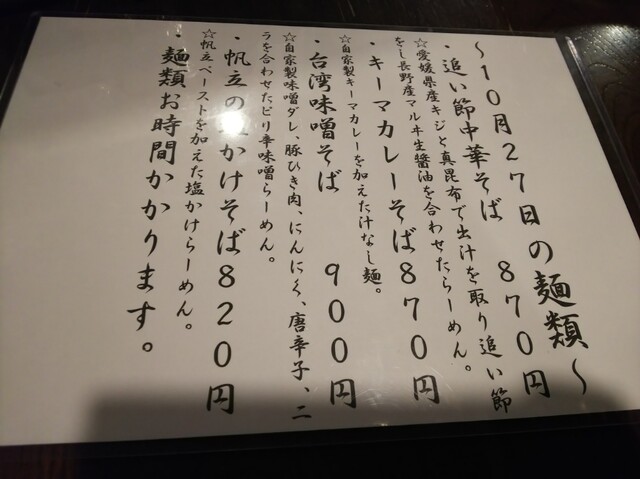 ～10月27日の麺類～
・追い節中華そば　870円
☆愛媛県産キジと真昆布で出汁を取り追い節
をし長野産マルヰ生醤油を合わせたらーめん。
・キーマカレーそば870円
☆自家製キーマカレーを加えた汁なし麺。
・台湾味噌そば　900円
☆自家製味噌ダレ、豚ひき肉、にんにく、唐辛子、ニ
ラを合わせたピリ辛味噌らーめん。
・帆立の塩かけそば820円
☆帆立ペーストを加えた塩かけらーめん。
・麺類お時間かかります。